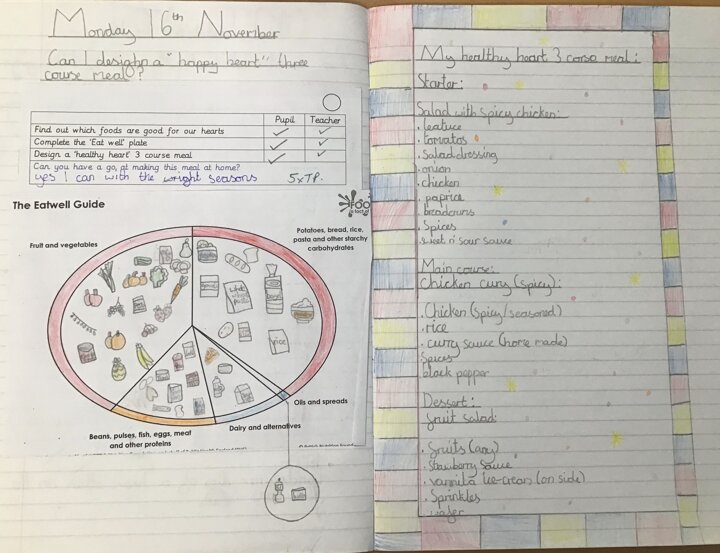 Monday 16th November
Can I desighn a "happy heart" three
course meal?
Pupil Teacher
Find out which foods are good for our hearts
Complete the 'Eat well' plate
Design a 'healthy heart' 3 course meal
Can you have a go at making this meal at home?
yes I can with the wright seasons 5xTP.
The Eatwell Guide
Fruit and vegetables
Potatoes, bread, rice,
pasta and other starchy
carbohydrates
rice
Oils and spreads
Dairy and alternatives
Beans, pulses, fish, eggs, meat
and other proteins
My healthy heart 3 corse meal:
Starter:
Salad with spicy chicken:
. leatuce
. tomatos
. Salad dressing
. onion
. chicken
. paprice
. breadcruns
. Spices
. sweet n' sour sauce
Main course:
Chicken curry (spicy):
. Chicken (spicy/seasoned)
. rice
. curry sauce (home made)
Spices
black pepper
Dessert:
fruit salad:
. fruits (any)
. strawberry sauce
. vannila ice-cream (on side)
. Sprinkles
. wafer